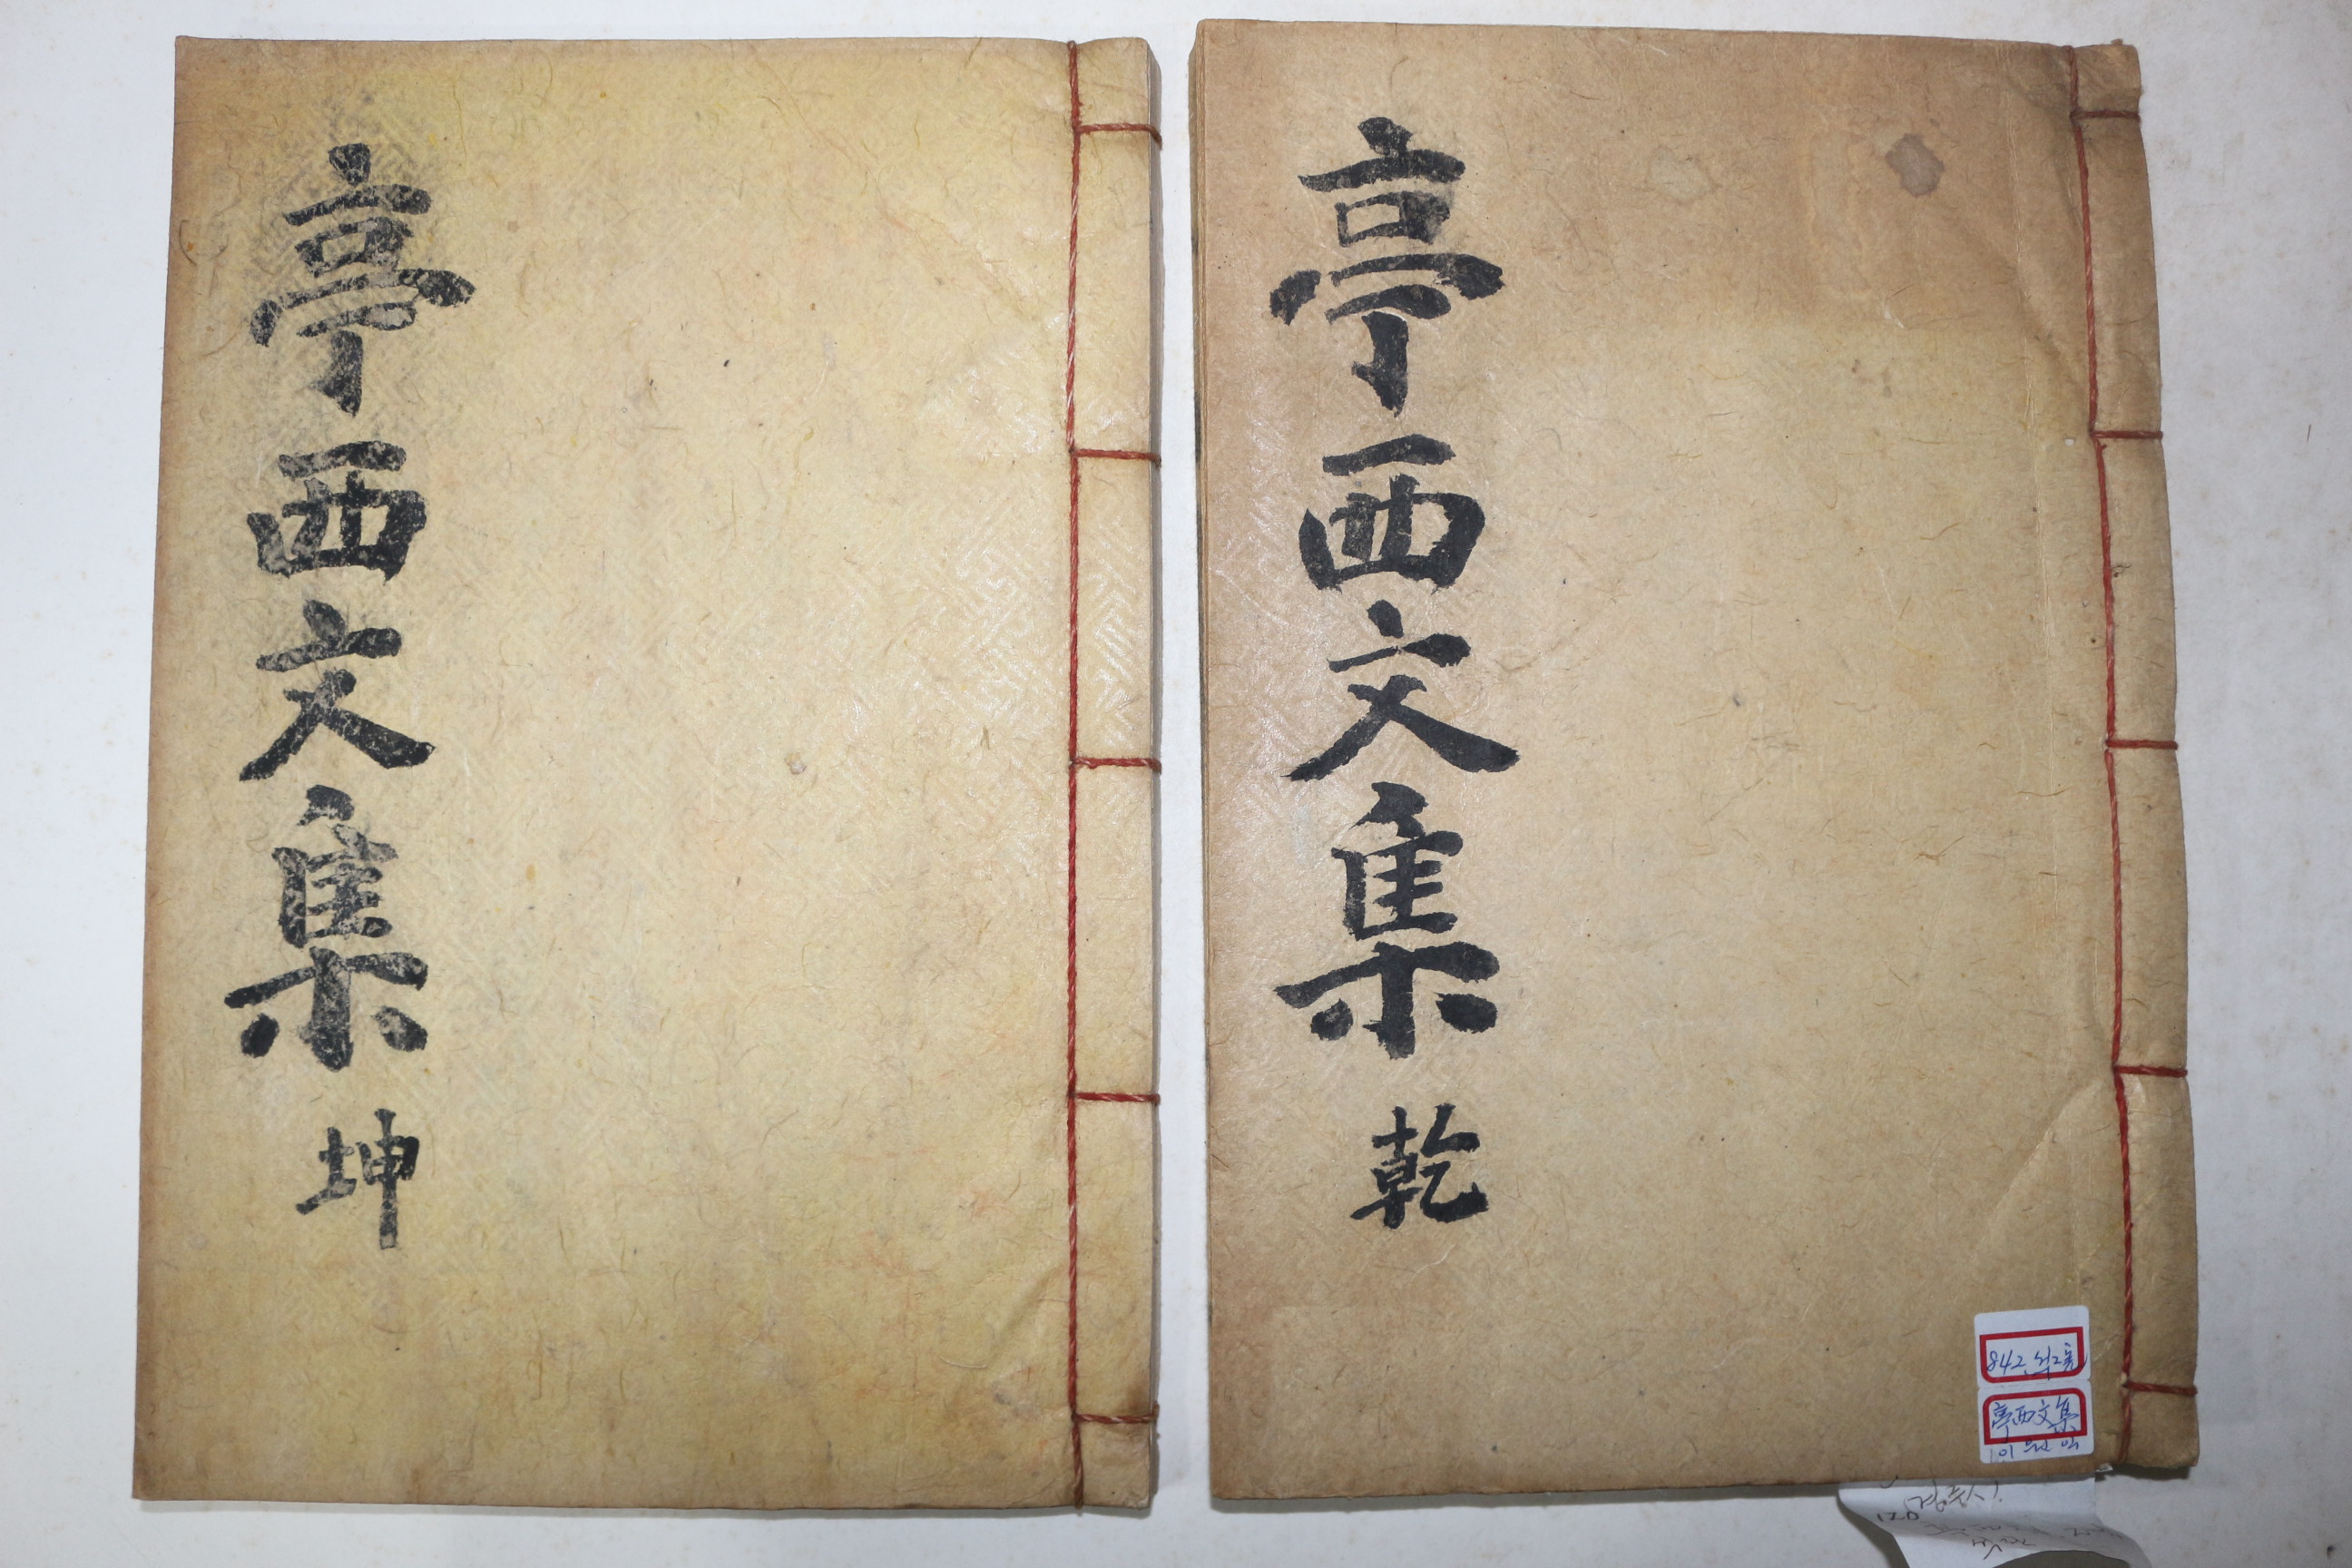 亭西文集 乾
亭西文集 坤
842
亭西文集